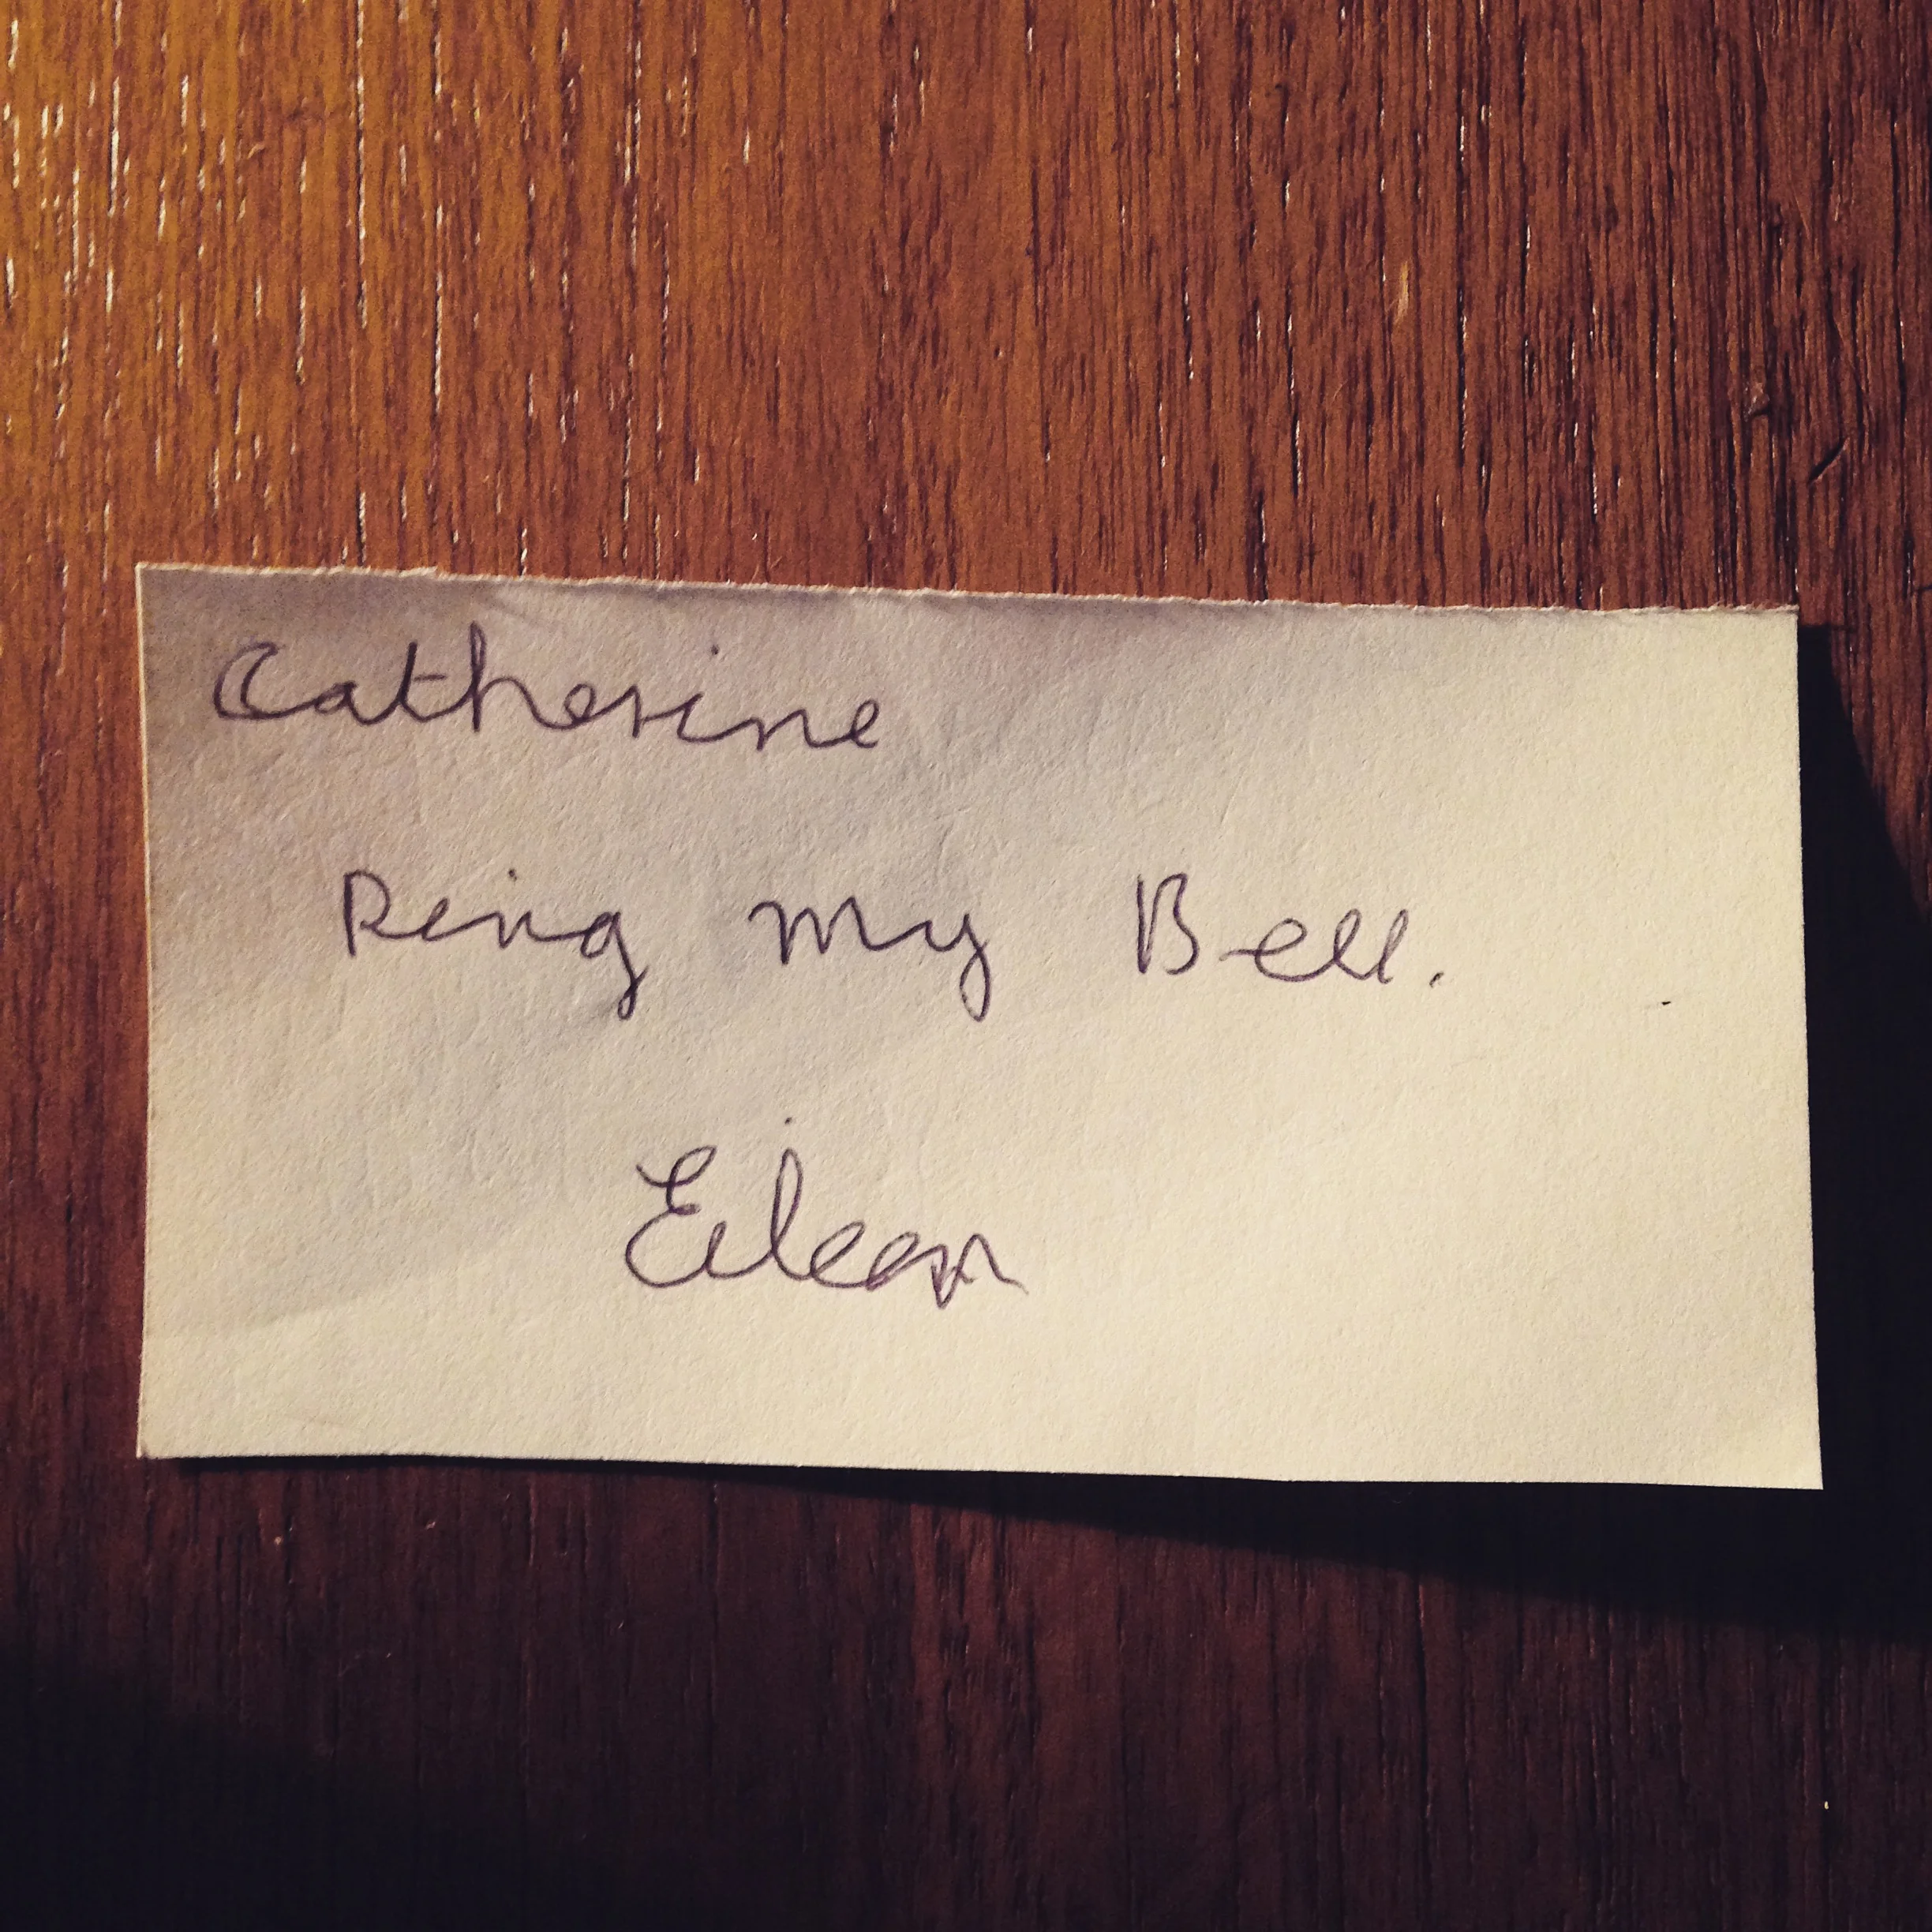 Catherine
Ring my Bell.
Eileen